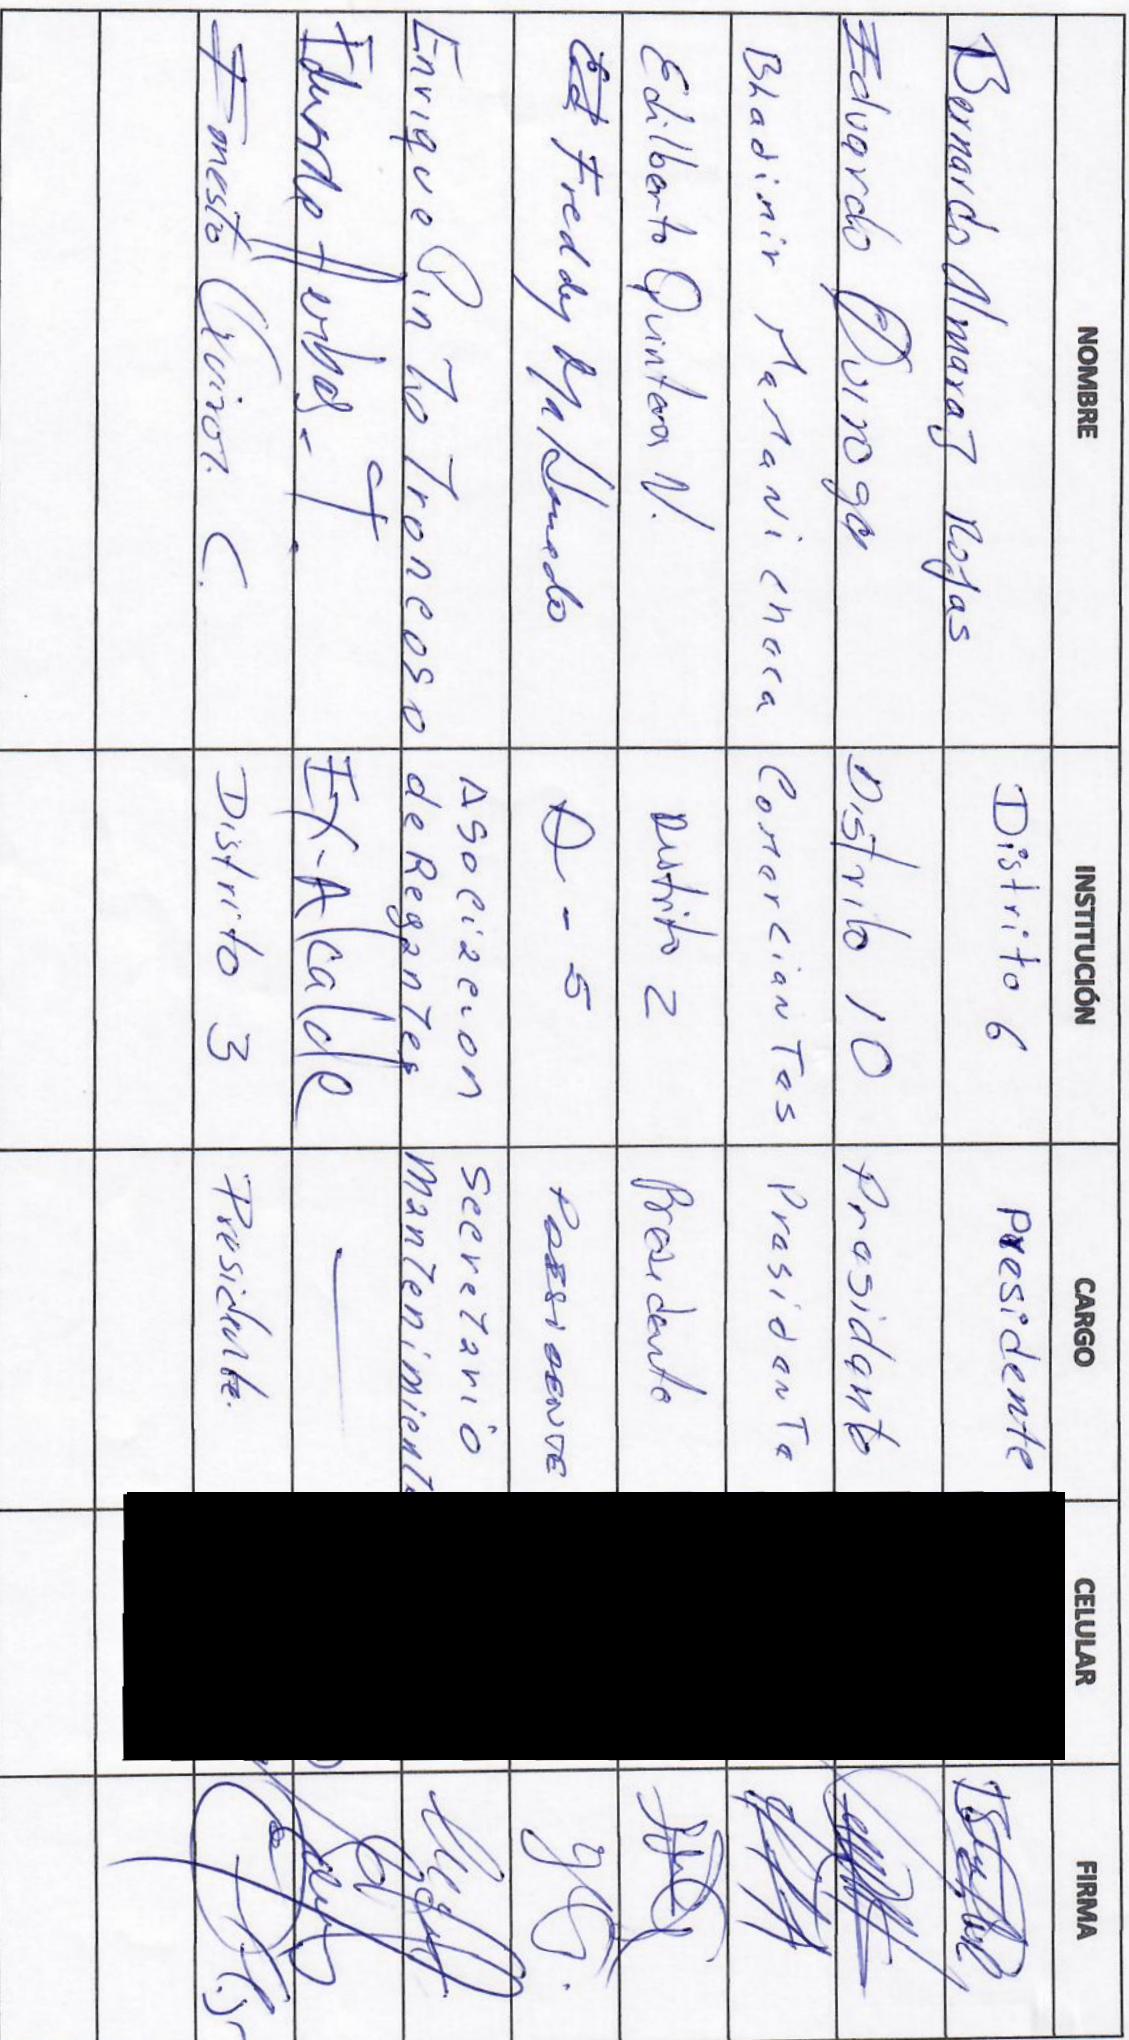 NOMBRE INSTITUCIÓN CARGO CELULAR FIRMA
Bernardo Almaraz Rojas Distrito 6 Presidente
Eduardo Quiroga Distrito 10 Presidante
Bladimir Mamani choca Comerciantes Prasidante
Edilberto Quinteros N. Distrito 2 Presidente
Freddy Maldonado D - 5 PRESIDENTE
Enrique Pinto Troncoso Asociacion de Regantes Secretario Mantenimiento
Eduardo Ex-Alcalde —
Ernesto C. Distrito 3 Presidente.